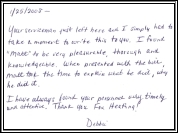 1/25/2008 -
Your serviceman just left here and I simply had to
take a moment to write this to you. I found
"Matt" to be very pleasurable, thorough and
knowledgeable. When presented with the bill,
Matt took the time to explain what he did, why
he did it.
I have always found your personnel very timely
and attentive. Thank you Fox Heating
Debbi